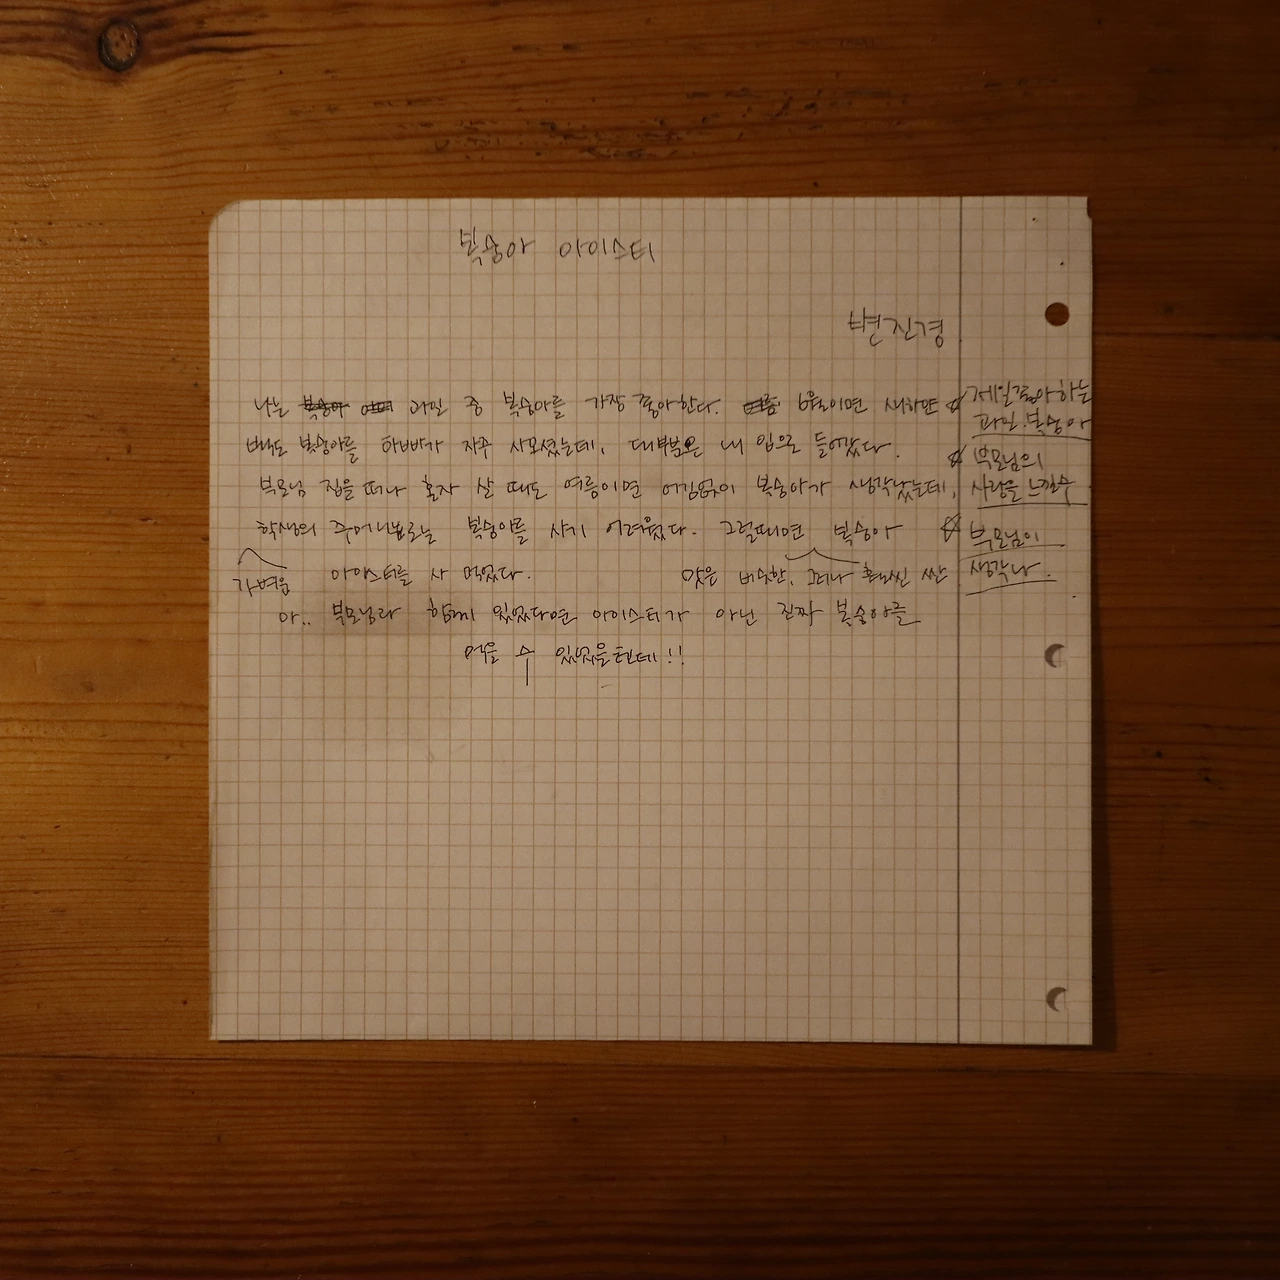 복숭아 아이스티
변진경
나는 과일 중 복숭아를 가장 좋아한다. 6월이면 새하얀
백도 복숭아를 아빠가 자주 사오셨는데, 대부분은 내 입으로 들어갔다.
부모님 집을 떠나 혼자 살 때도 여름이면 어김없이 복숭아가 생각났는데,
학생의 주머니로는 복숭아를 사기 어려웠다. 그럴때면 복숭아
가벼운
아이스티를 사 먹었다.
맛은 비슷한, 그러나 훨씬 싼
아.. 부모님과 함께 있었다면 아이스티가 아닌 진짜 복숭아를
먹을 수 있었을텐데!!
☆ 제일 좋아하는
과일: 복숭아
☆ 부모님의
사랑을 느낄수
☆ 부모님이
생각나.